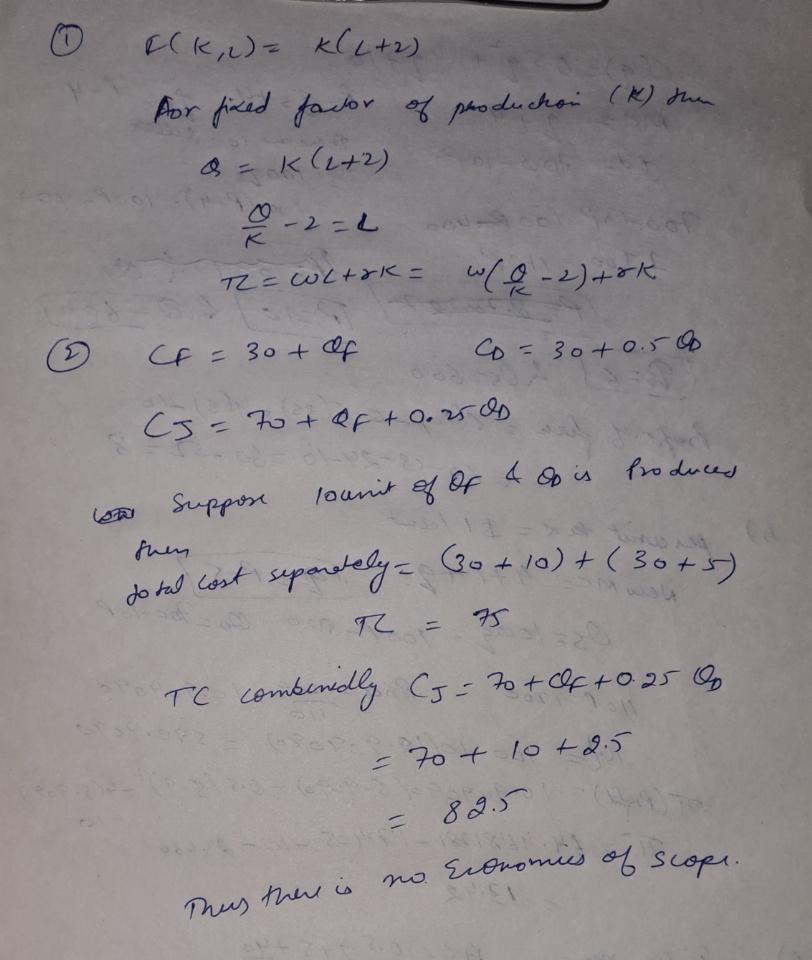 ① F(K,L) = K(L+2)
For fixed factor of production (K) then
Q = K(L+2)
Q/K - 2 = L
TC = wL + rK = w(Q/K - 2) + rK
② CF = 30 + QF CD = 30 + 0.5 QD
CJ = 70 + QF + 0.25 QD
Suppose 10 unit of QF & QD is Produced
then
total cost separately = (30 + 10) + (30 + 5)
TC = 75
TC combinedly CJ = 70 + QF + 0.25 QD
= 70 + 10 + 2.5
= 82.5
Thus there is no Economies of scope.